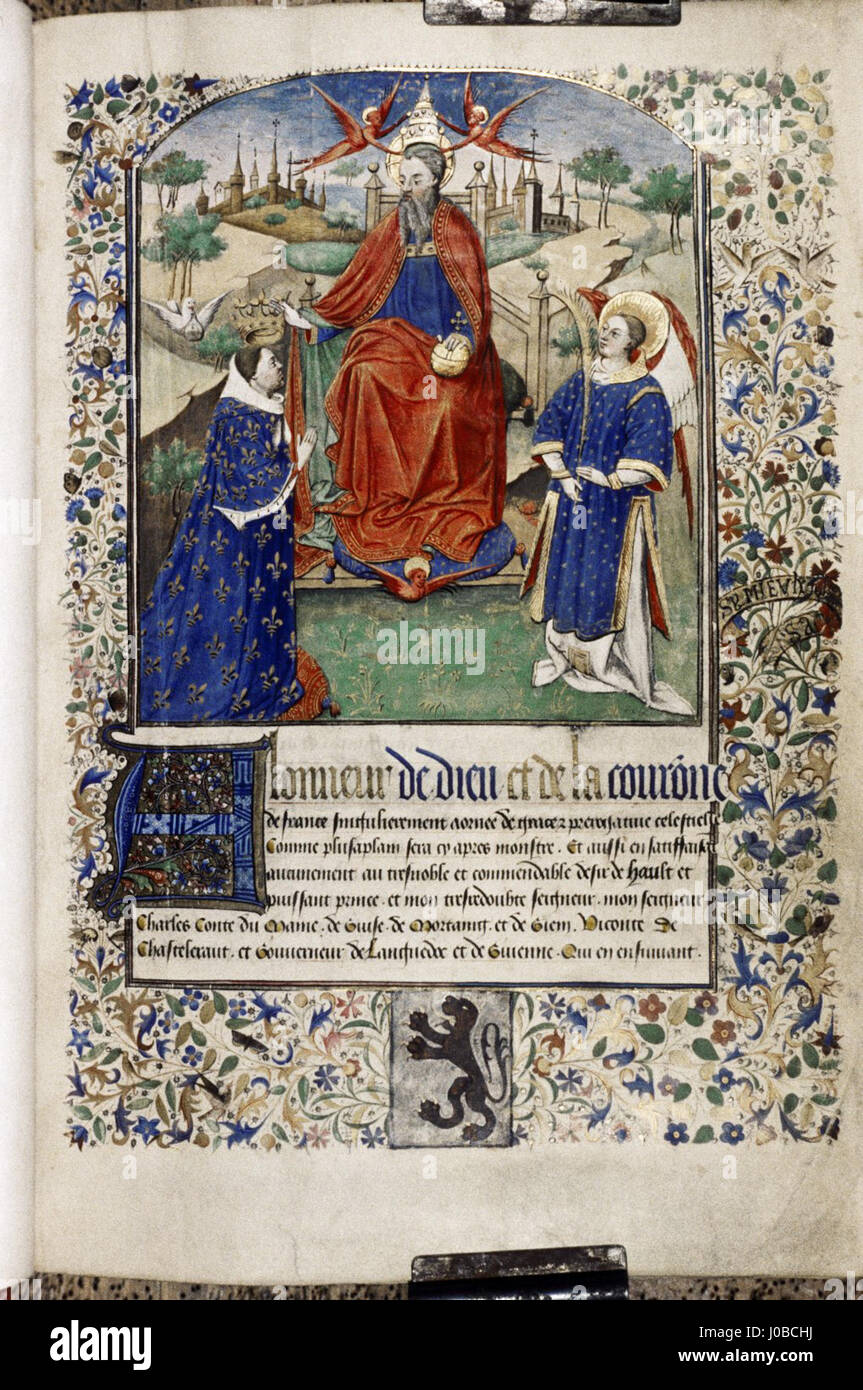 SP MIEVLX
SA
A lonneur de dieu et de la couronne
de france singulierement aornee de grace z prerogatiue celestielle
Comme plusaplain sera cy apres monstre. Et aussi en satiffaisāt
aucunement au tresnoble et commendable desir de hault et
puissant prince, et mon tresredoubte seigneur, mon seigneur
Charles Conte du Maine, de Guise, de Mortaing et de Giem, Viconte de
Chastelerault, et Gouuerneur de Languedoc et de Guienne. Qui en ensuiuant.
alamy
Image ID: J0BCHJ
www.alamy.com